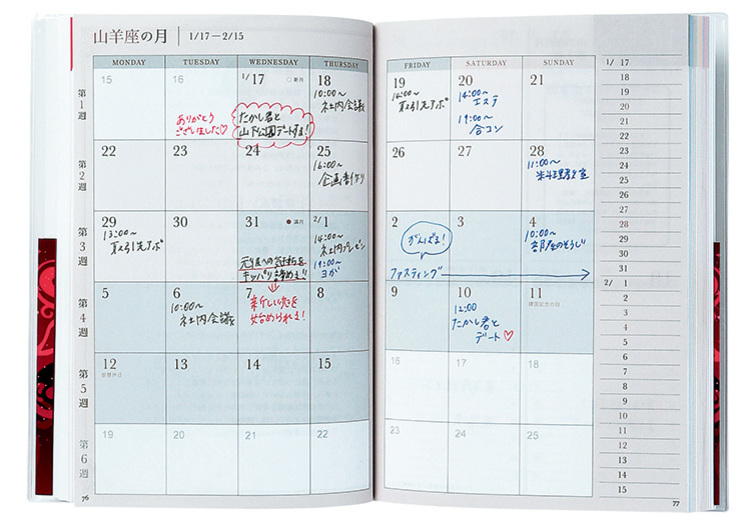 山羊座の月 1/17－2/15
MONDAY TUESDAY WEDNESDAY THURSDAY
FRIDAY SATURDAY SUNDAY
第1週
15 16 1/17 ○新月 18
ありがとう
ございました♡
たかし君と
山下公園デートする!
10:00～
社内会議
19 20 21
14:00～
取引先アポ
14:00～
エステ
19:00～
合コン
第2週
22 23 24 25
16:00～
企画書〆切
26 27 28
11:00～
料理教室
第3週
29 30 31 ●満月 2/1
13:00～
取引先アポ
元彼への
キッパリ諦める!!
14:00～
社内プレゼン
19:00～
ヨガ
2 3 4
がんばる!
ファスティング
10:00～
部屋のそうじ
第4週
5 6 7 8
10:00～
社内会議
新しい恋を
始められる!
9 10 11
建国記念の日
12:00
たかし君と
デート♡
第5週
12 13 14 15
振替休日
16 17 18
第6週
19 20 21 22
23 24 25
1/ 17
18
19
20
21
22
23
24
25
26
27
28
29
30
31
2/ 1
2
3
4
5
6
7
8
9
10
11
12
13
14
15
76
77